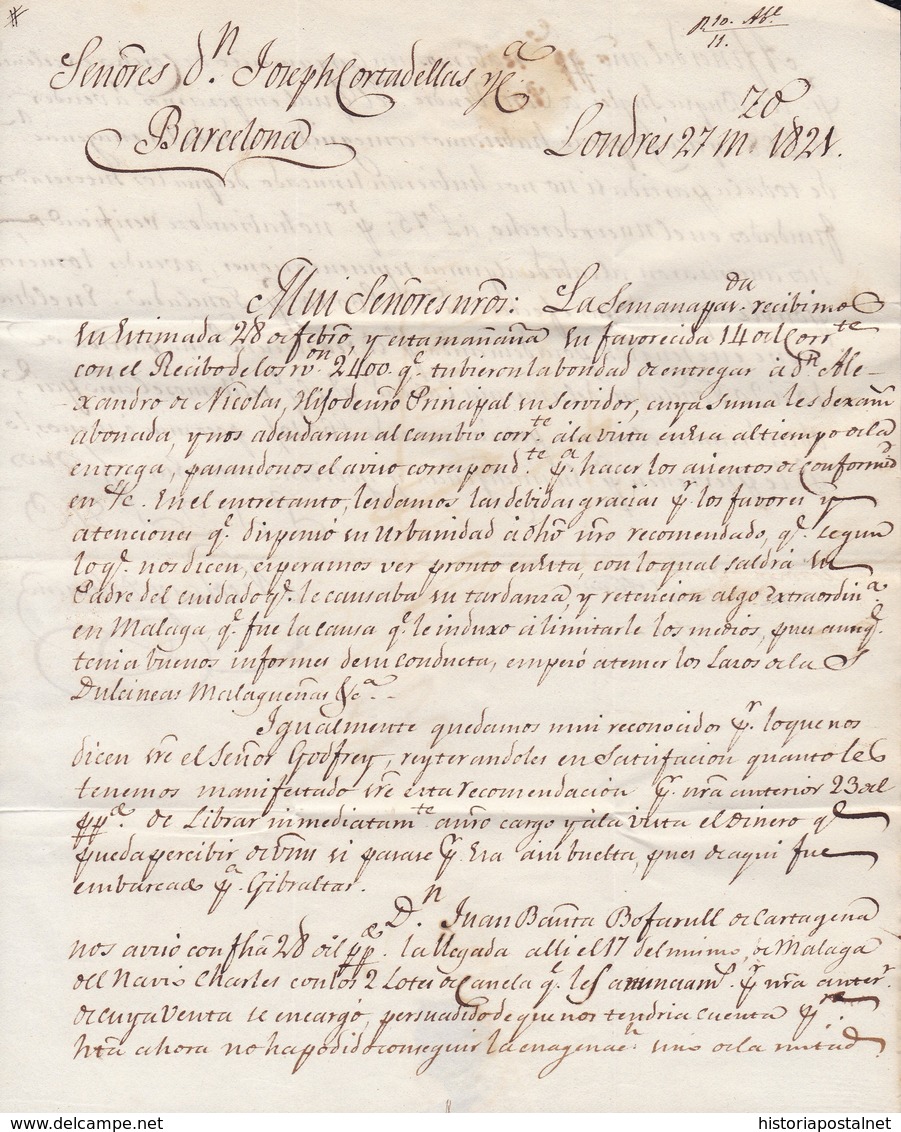 R 10. Abl.
11.
Señores Dn. Joseph Cortadellas y Ca.
Barcelona
Londres 27 Mzo. 1821.
Mui Señores nrōs: La Semana pasda. recibimos
su estimada 28 de febrō, y esta mañana su favorecida 14 del Corrte
con el Recibo de los rvon. 2400. q̄. tubieron la bondad de entregar a dn. Ale-
xandro de Nicolas, Hijo de nrō Principal su servidor, cuya suma les dexam
abonada, y nos adeudaran al cambio corrte. a la vista en esa al tiempo de la
entrega, pasandonos el aviso correspondte. pa. hacer los asientos de Conformd
en Cte. En el entretanto, les damos las debidas gracias pr. los favores y
atenciones q̄. dispensó su Urbanidad a dhō nrō recomendado, q̄. segun
lo q̄. nos dicen, esperamos ver pronto en esta, con lo qual saldrá su
Padre del cuidado q̄. le causaba su tardanza, y retencion algo extraordina.
en Malaga, q̄. fue la causa q̄. le induxo a limitarle los medios, pues aunq̄.
tenia buenos informes de su conducta, empezó a temer los Lazos de las
Dulcineas Malagueñas &ca.
Igualmente quedamos mui reconocidos pr. lo que nos
dicen sr̄e el Señor Godfrey, reyterandoles en Satisfacion quanto les
tenemos manifestado sr̄e esta recomendacion pr. nr̄a anterior 23 del
ppdo. de Librar inmediatamte. a nrō cargo y a la vista el dinero q̄
pueda percibir de Vms si pasase pr. Esa a su buelta, pues de aqui fue
embarcado pa. Gibraltar.
Dn. Juan Baūta Bofarull de Cartagena
nos avisó con fhā 28 del ppdo. la llegada alli el 17 del mismo, de Malaga
del Navio Charles con los 2 Lotes de Canela q̄. les anunciams. pr. nr̄a anterr.
de cuya venta se encargó, persuadido de que nos tendria cuenta pr.
htā ahora no ha podido conseguir la enagenacn. sino de la mitad
historiapostalnet